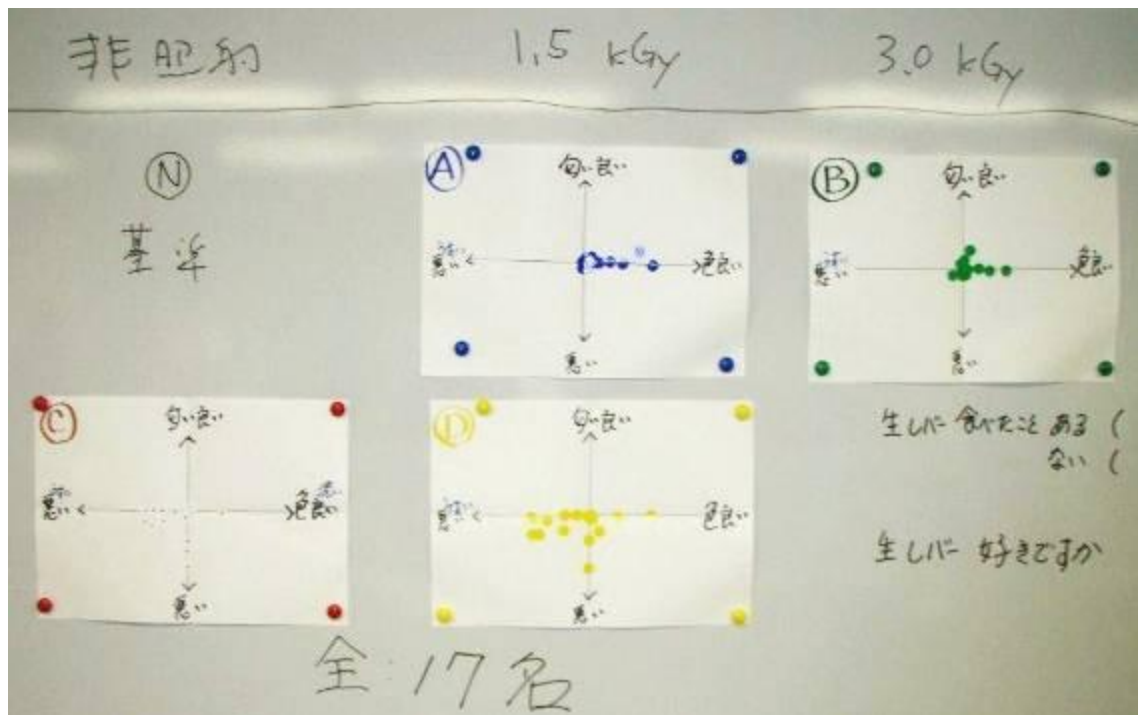 非照射 1.5 kGy 3.0 kGy
N
基準
A
匂い良い
悪い 色良い
悪い
B
匂い良い
悪い 色良い
悪い
C
匂い良い
悪い 色良い
悪い
D
匂い良い
悪い 色良い
悪い
生レバー 食べたこと ある (
ない (
生レバー 好きですか
全 17名